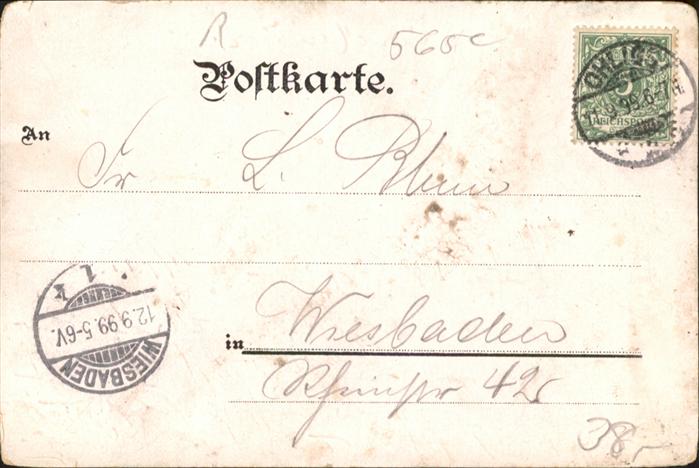 R 565c
Postkarte.
OHLIGS
9.99.6-7N.
5
REICHSPOST
An
Fr L. Blum
in Wiesbaden
Rheinstr 42
WIESBADEN
12.9.99.5-6V.
1 k
38,-